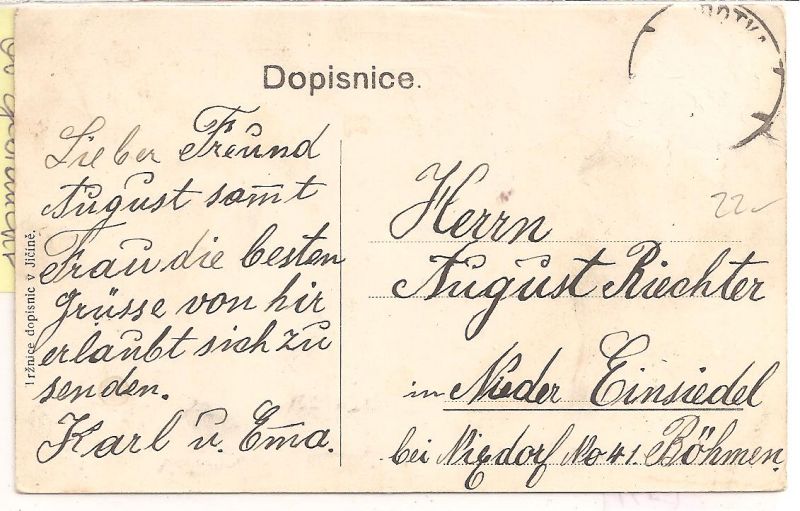 Dopisnice.
Lieber Freund
August sammt
Frau die besten
Grüsse von hir
erlaubt sich zu
senden.
Karl u. Ema.
Tržnice dopisnic v Jičíně.
Herrn
August Riechter
in Nieder Einsiedel
bei Nixdorf No 41. Böhmen.
22